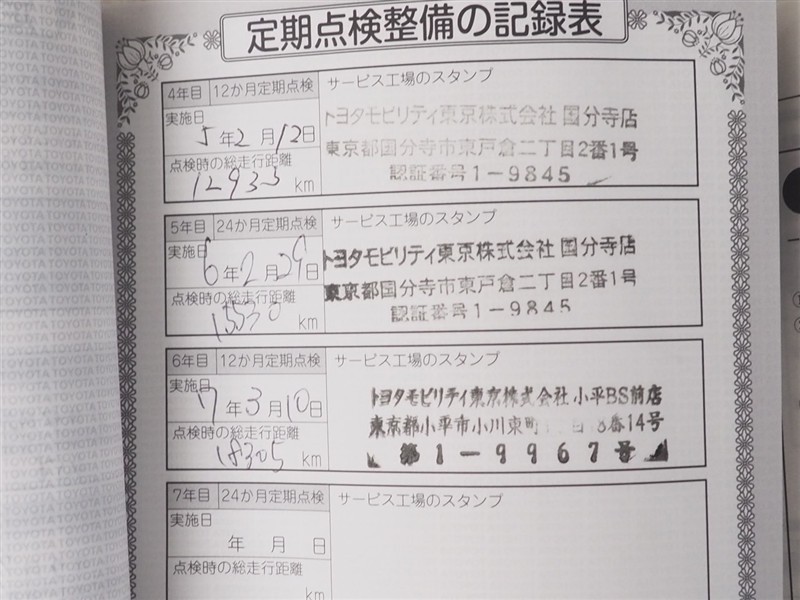 定期点検整備の記録表
4年目 12か月定期点検 サービス工場のスタンプ
実施日
5年2月12日
点検時の総走行距離
12933 km
トヨタモビリティ東京株式会社 国分寺店
東京都国分寺市東戸倉二丁目2番1号
認証番号1-9845
5年目 24か月定期点検 サービス工場のスタンプ
実施日
6年2月29日
点検時の総走行距離
15530 km
トヨタモビリティ東京株式会社 国分寺店
東京都国分寺市東戸倉二丁目2番1号
認証番号1-9845
6年目 12か月定期点検 サービス工場のスタンプ
実施日
7年3月10日
点検時の総走行距離
18305 km
トヨタモビリティ東京株式会社 小平BS前店
東京都小平市小川東町 8番14号
第1-9967号
7年目 24か月定期点検 サービス工場のスタンプ
実施日
年 月 日
点検時の総走行距離
km